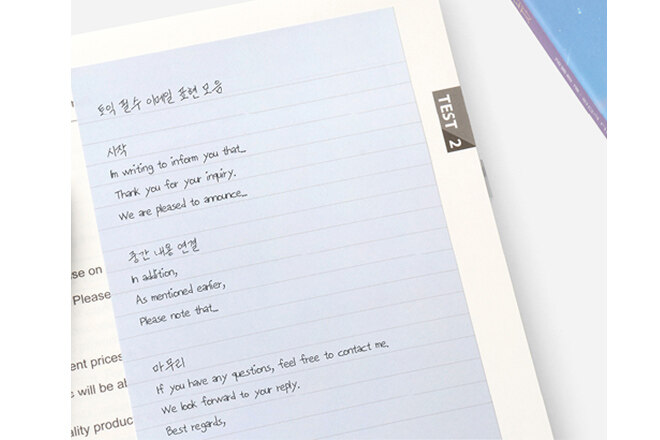 토익 필수 이메일 표현 모음
시작
Im writing to inform you that...
Thank you for your inquiry.
We are pleased to announce...
중간 내용 연결
In addition,
As mentioned earlier,
Please note that...
마무리
If you have any questions, feel free to contact me.
We look forward to your reply.
Best regards,
TEST 2
se on
Please
ent prices
will be al
ality produc